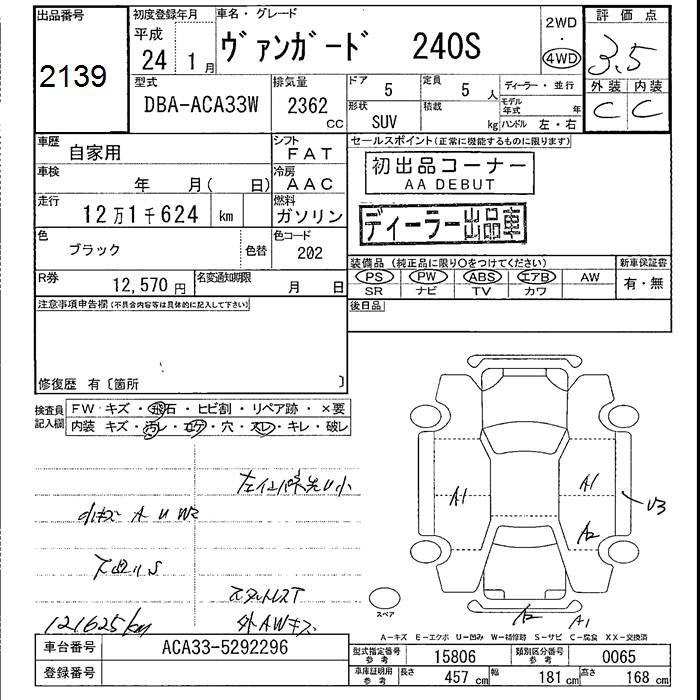 出品番号
2139
初度登録年月
平成
24 1月
車名・グレード
ヴァンガード 240S
2WD
・
4WD
評価点
3.5
外装 内装
C C
型式
DBA-ACA33W
排気量
2362
CC
ドア
5
定員
5 人
形状
SUV
積載
kg
ディーラー・並行
モデル年式 年
ハンドル 左・右
車歴
自家用
シフト
FAT
車検
年 月( 日)
冷房
AAC
走行
12万1千624 km
燃料
ガソリン
色
ブラック
色替
色コード
202
R券
12,570 円
名変通知期限
月 日
セールスポイント(正常に機能するものに限ります)
初出品コーナー
AA DEBUT
ディーラー出品車
装備品(純正品に限り○をつけてください)
新車保証書
PS PW ABS エアB AW
SR ナビ TV カワ
有・無
後日品
注意事項申告欄(不具合内容等は具体的に記入して下さい)
修復歴 有〔箇所 〕
検査員
記入欄
FW キズ・飛石・ヒビ割・リペア跡・×要
内装 キズ・汚れ・コゲ・穴・スレ・キレ・破レ
小キズ A U W2
下廻りS
121625km
外AWキズ
A1
A1
A2
U3
A2
A1
スペア
A-キズ E-エクボ U-凹み W-補修跡 S-サビ C-腐食 XX-交換済
車台番号
ACA33-5292296
登録番号
型式指定番号
参考
15806
類別区分番号
参考
0065
車庫証明用
参考
長さ
457 cm
幅
181 cm
高さ
168 cm